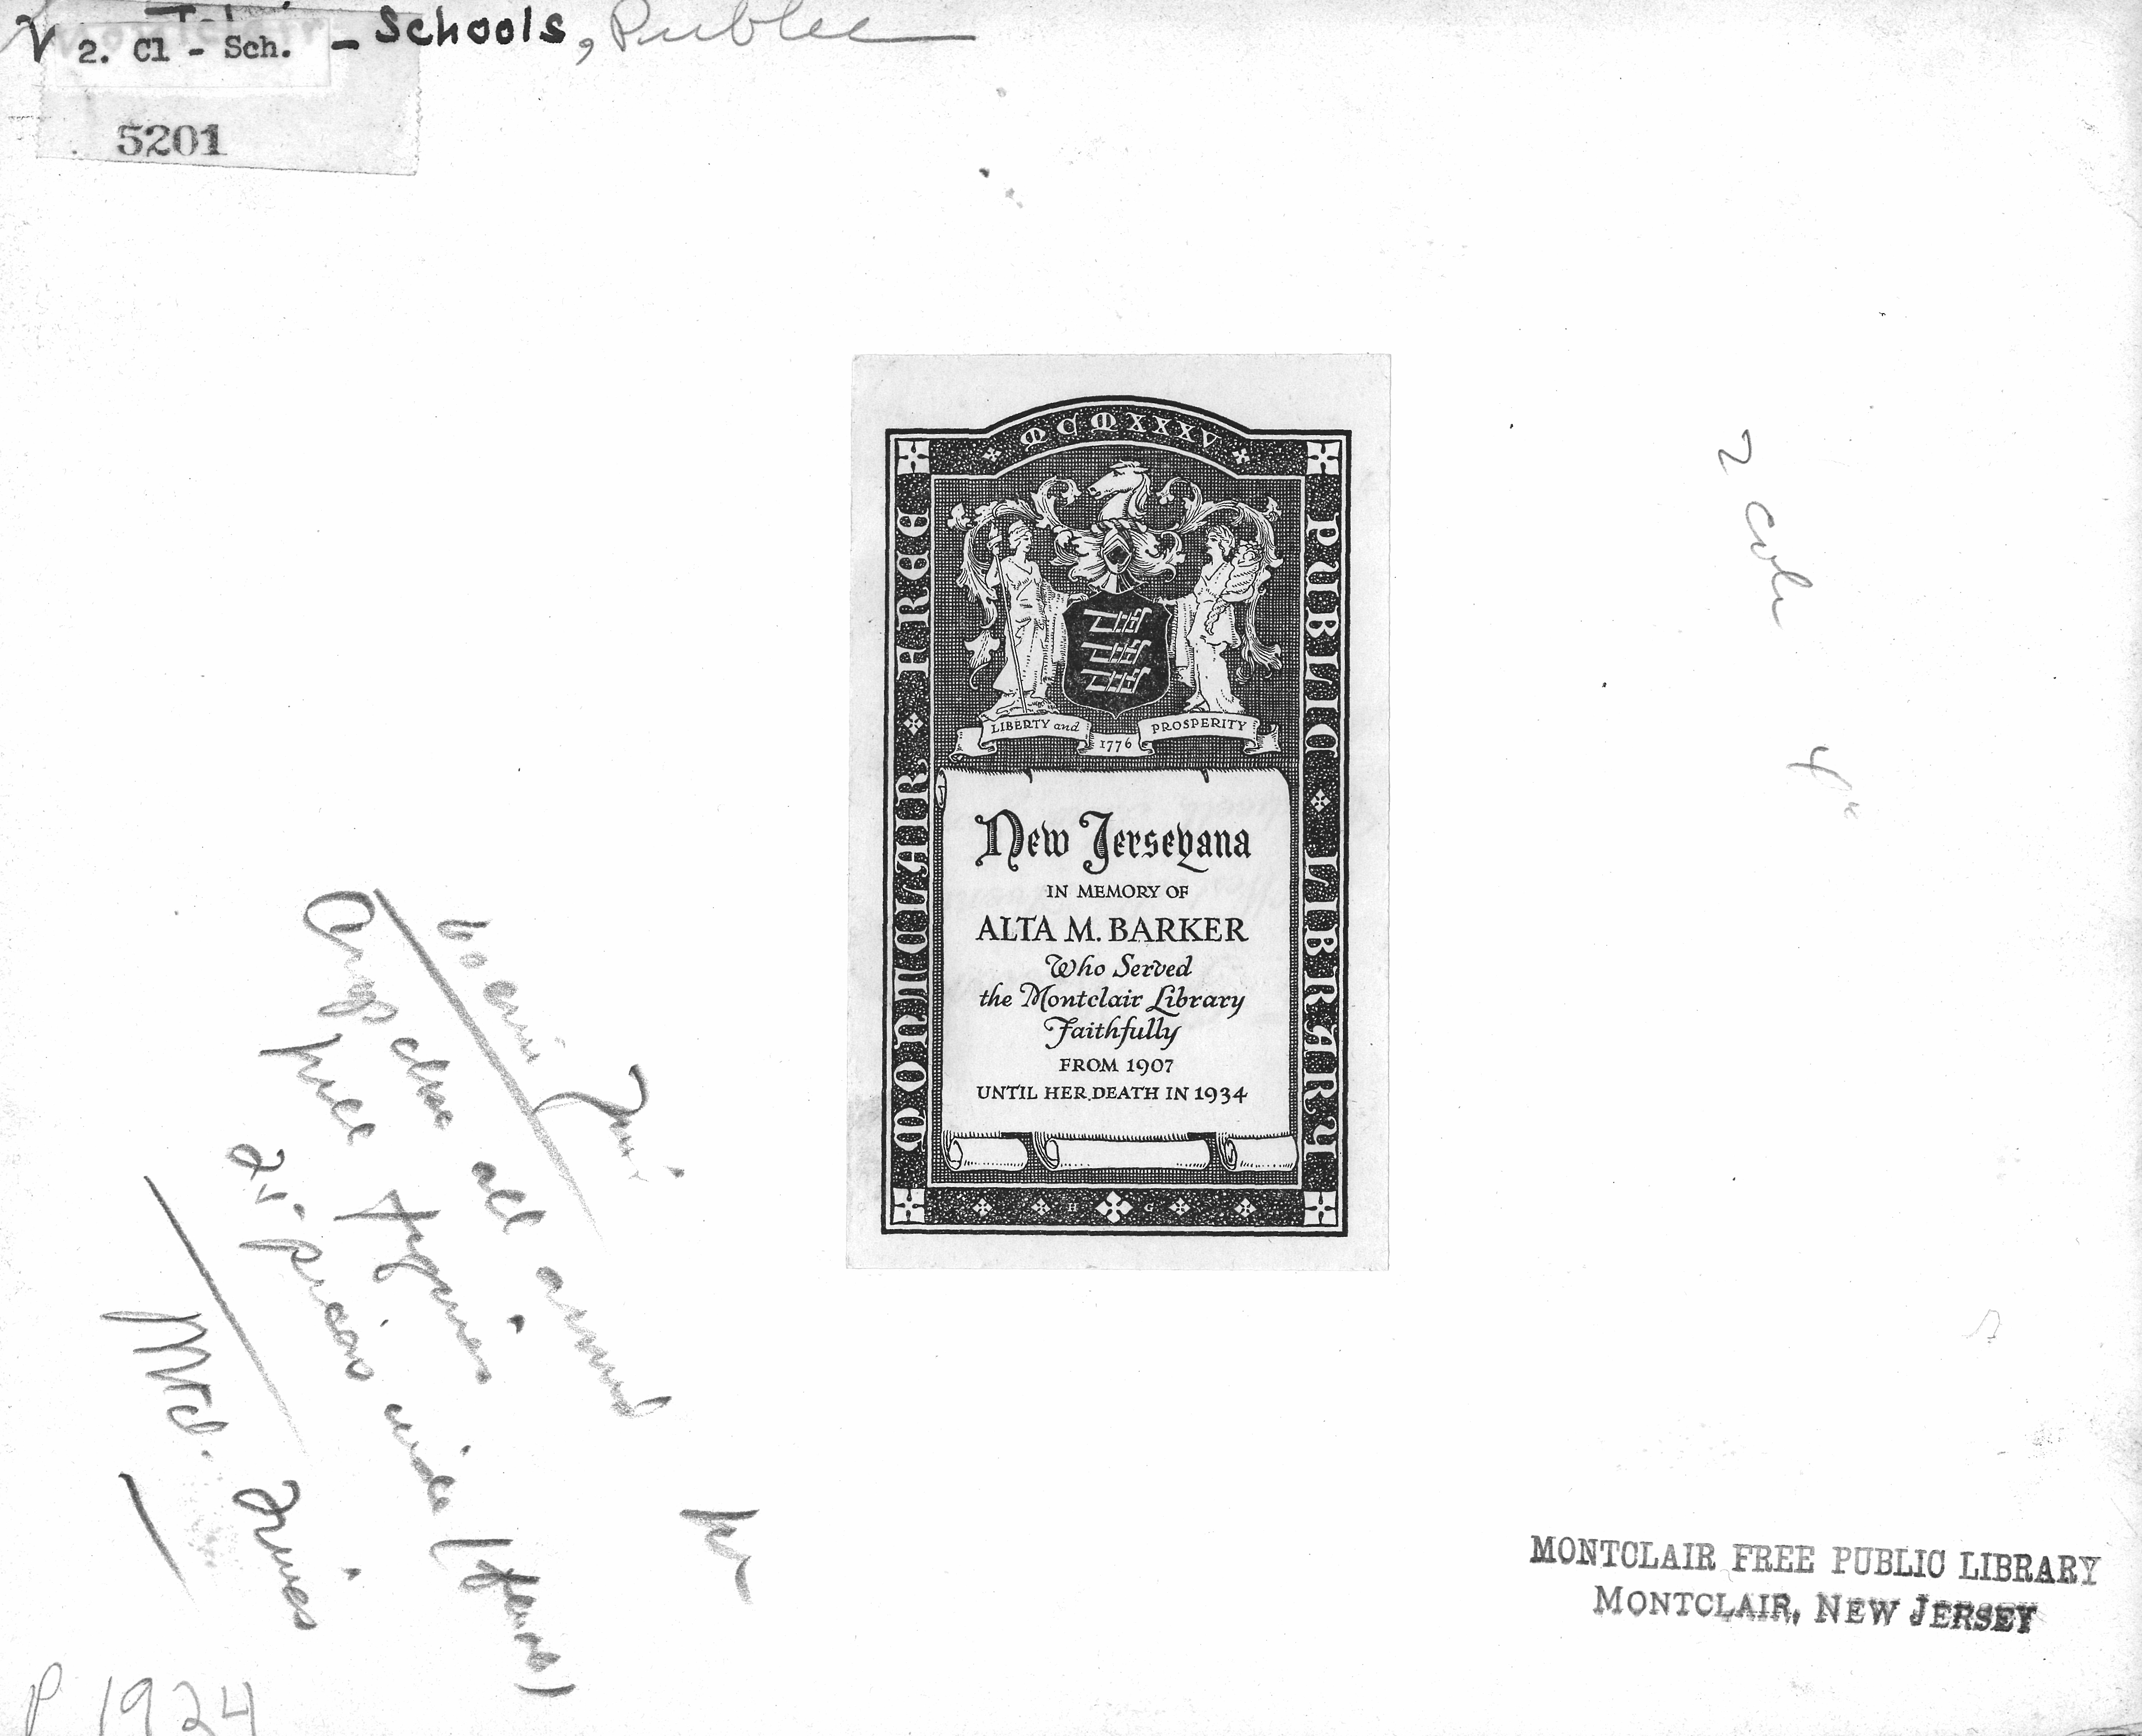 2. Cl - Sch. - Schools, Public
5201
MCMXXXV
MONTCLAIR FREE
PUBLIC LIBRARY
LIBERTY and 1776 PROSPERITY
New Jerseyana
IN MEMORY OF
ALTA M. BARKER
Who Served
the Montclair Library
Faithfully
FROM 1907
UNTIL HER DEATH IN 1934
H G
2 cols
4"
all around
figures
MONTCLAIR FREE PUBLIC LIBRARY
MONTCLAIR, NEW JERSEY
P 1924